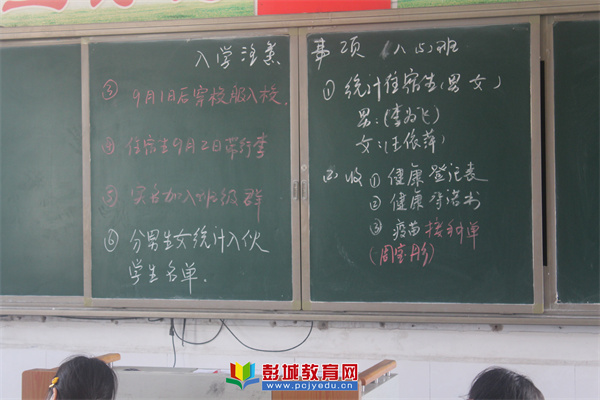 入学注意事项 (八(4)班
① 统计住宿生(男 女)
男:(李为飞)
女:(王依萍)
② 收 ① 健康登记表
② 健康承诺书
③ 疫苗接种单
(周宝彤)
③ 9月1日后穿校服入校.
④ 住宿生9月2日带行李
⑤ 实名加入班级群
⑥ 分男生女统计入伙
学生名单.
彭城教育网
www.pcjyedu.cn